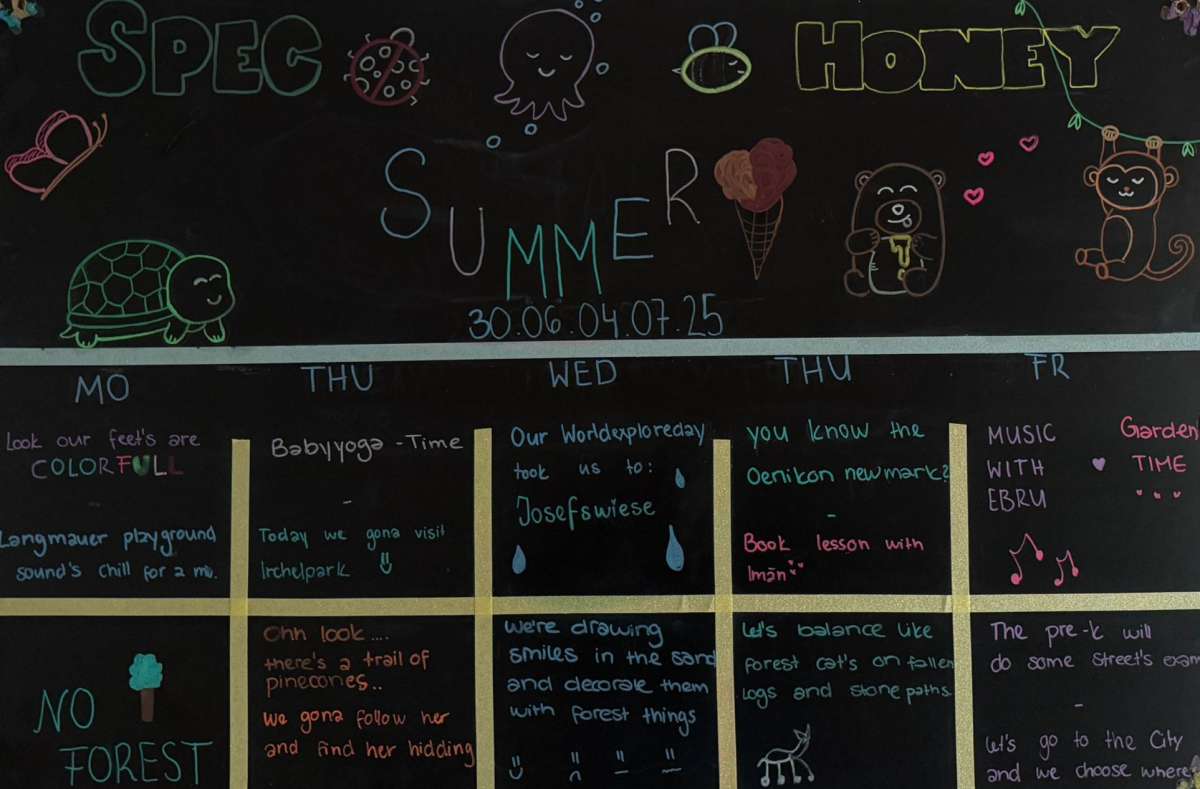 SPEC
HONEY
SUMMER
30.06.04.07.25
MO
THU
WED
THU
FR
Look our feet's are
COLORFULL
-
Langmauer playground
sound's chill for a mi.
Babyyoga - Time
-
Today we gona visit
Irchelpark
Our Worldexploreday
took us to:
Josefswiese
you know the
Oerikon newmark?
-
Book lesson with
Imän
MUSIC
WITH
EBRU
Garden
TIME
NO
FOREST
Ohh look....
there's a trail of
pinecones..
We gona follow her
and find her hidding
we're drawing
smiles in the sand
and decorate them
with forest things
Let's balance like
forest cat's on fallen
logs and stone paths.
The pre-k will
do some street's exam
-
Let's go to the City
and we choose where